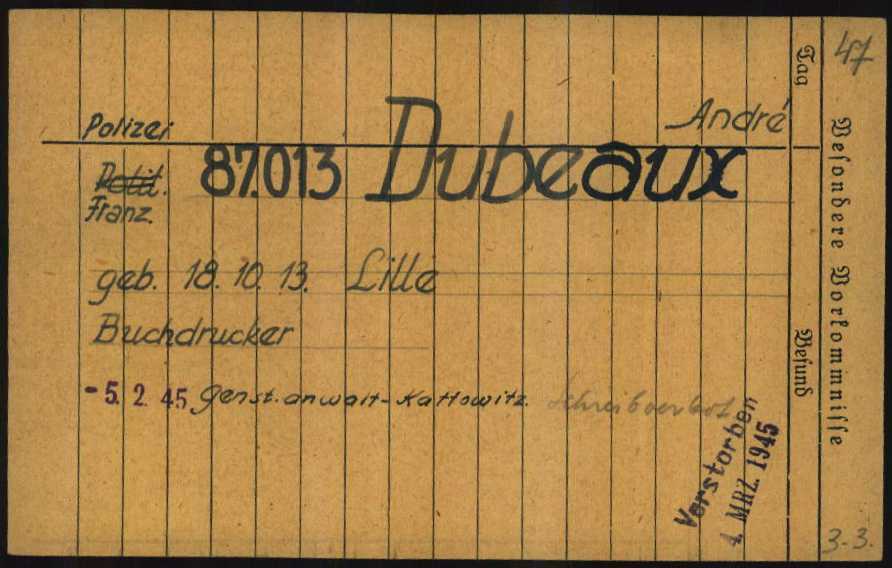 47
André
Polizei
87.013 Dubeaux
Polit.
Franz.
geb. 18. 10. 13. Lille
Buchdrucker
- 5. 2. 45 Genst. anwalt - Kattowitz. Schreibverbot
Verstorben
4. MRZ. 1945
Tag
Befund
Besondere Vorkommnisse
3-3.